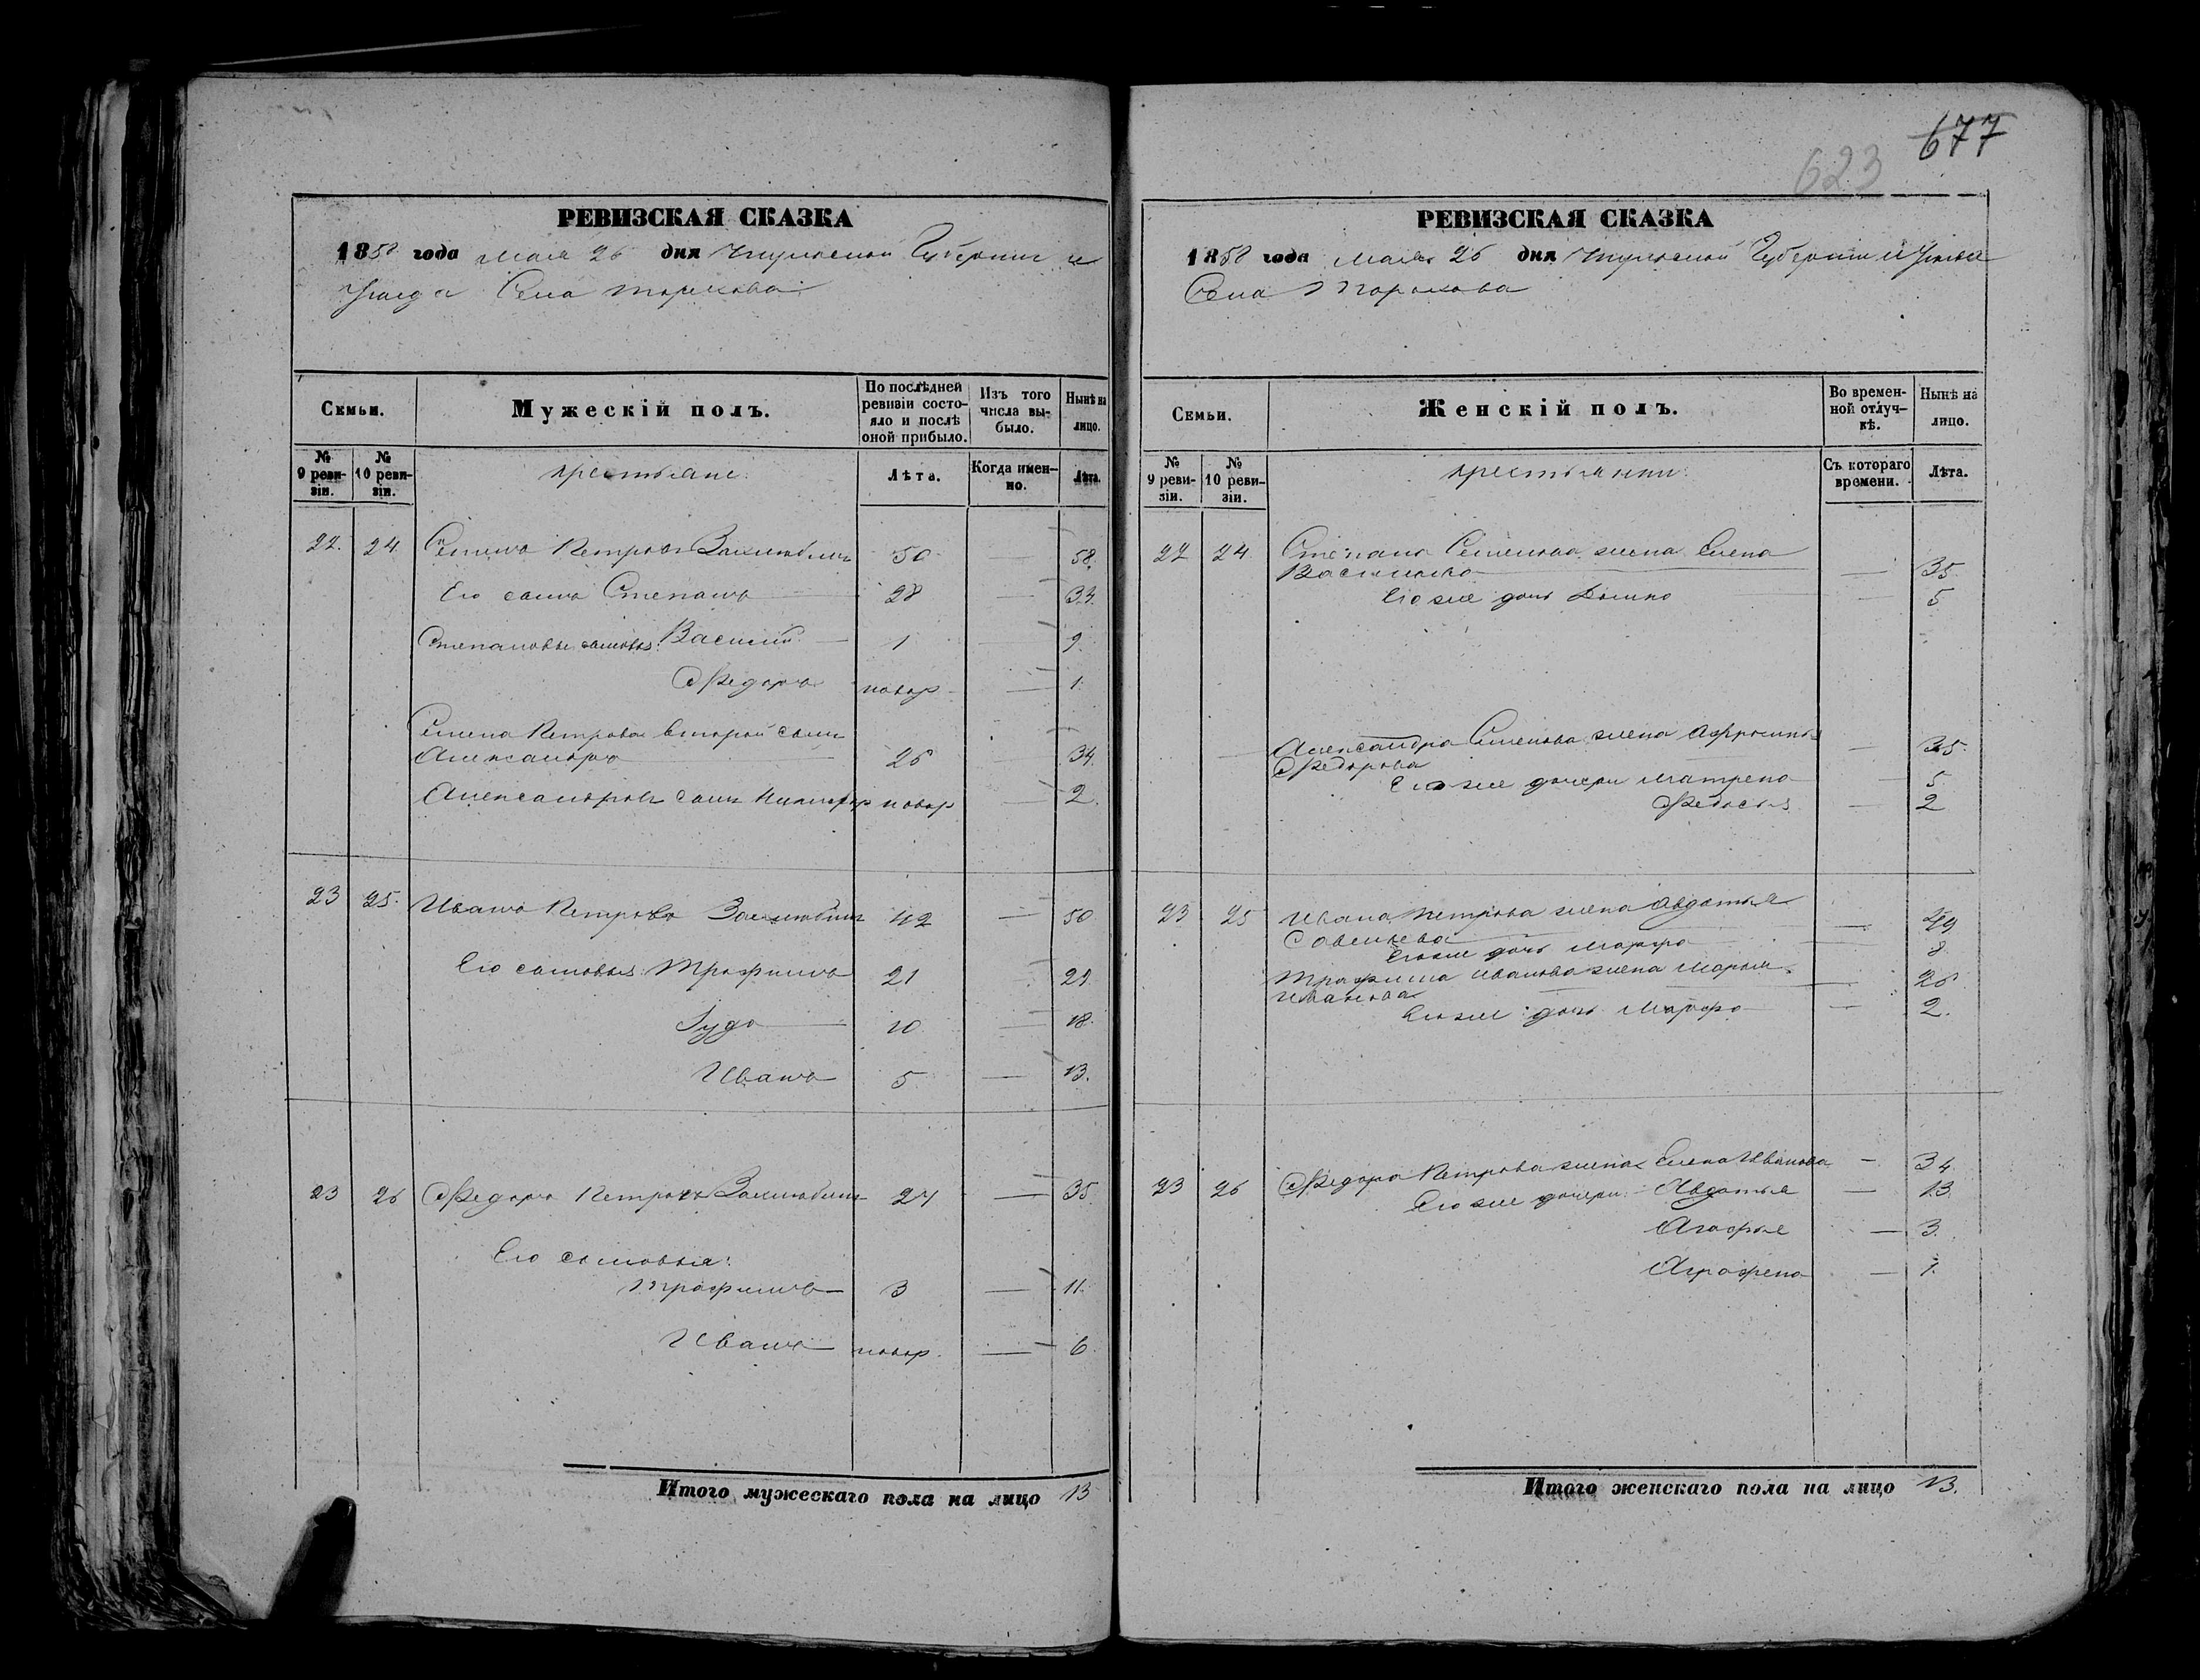 677
623
РЕВИЗСКАЯ СКАЗКА
1858 года мая 26 дня Губернiи и
Уезда Села Торхова
Семьи.
Мужескiй полъ.
По послѣдней ревизiи состо-яло и послѣ оной прибыло.
Изъ того числа вы-было.
Нынѣ на лицо.
№ 9 реви-зiи.
№ 10 реви-зiи.
крестьяне
Лѣта.
Когда имен-но.
Лѣта.
22. 24. Семенъ Петровъ 50 — 58.
Его сынъ Степанъ 28 — 33.
Степановы сыновья: Василiй — 1 — 9.
Федоръ новор — 1.
Семена Петрова второй сынъ
Александръ 26 34.
Александровъ сынъ новор — 2.
23 25. Иванъ Петровъ 42 — 50
Его сыновья: Трофимъ 21 — 29
10 — 18.
Иванъ 5 — 13.
23 26 Федоръ Петровъ 27 — 35
Его сыновья:
Трофимъ 3 — 11.
Иванъ новор. — 6.
Итого мужескаго пола на лицо 13
РЕВИЗСКАЯ СКАЗКА
1858 года мая 26 дня Губернiи и Уезда
Села Торхова
Семьи.
Женскiй полъ.
Во времен-ной отлуч-кѣ.
Нынѣ на лицо.
№ 9 реви-зiи.
№ 10 реви-зiи.
крестьянки
Съ котораго времени.
Лѣта.
22 24. Степана Семенова жена Елена
Васильева — 35.
Его же дочь — 5
Александра Семенова жена — 35.
Федорова
Его же дочери Матрена — 5
Федосья — 2
23 25 Ивана Петрова жена Авдотья
Савельева — 49
Его же дочь Марфа — 8
Трофима Иванова жена Марья
Иванова — 26
Его же дочь Марфа — 2.
23 26 Федора Петрова жена Елена Иванова — 34
Его же дочери: Авдотья — 13.
Агафья — 3.
Аграфена — 1.
Итого женскаго пола на лицо 13.